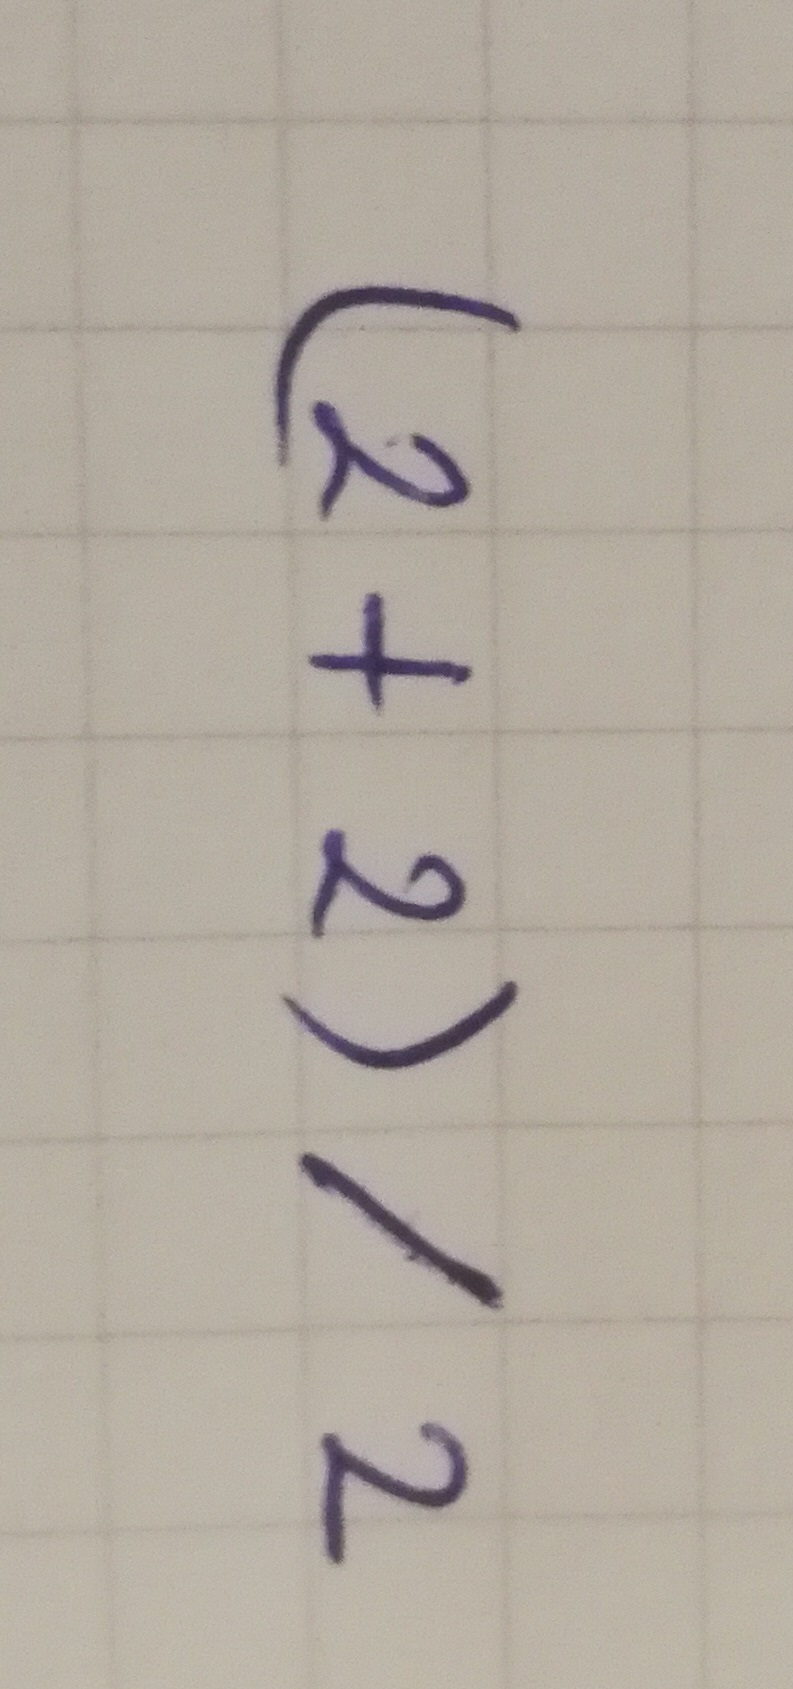 (2 + 2) / 2